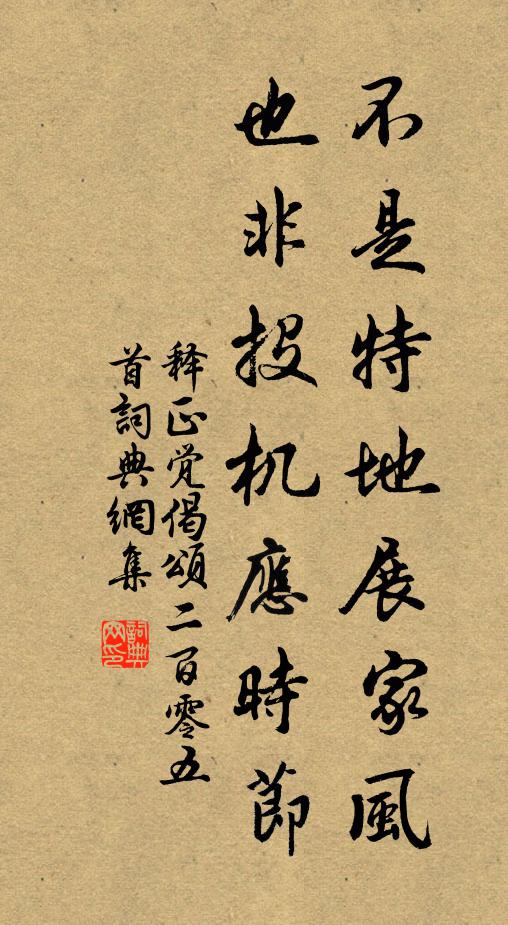 不是特地展家風
也非投机應時節
释正觉偈頌二百零五
首詞典網集
詞典
网印